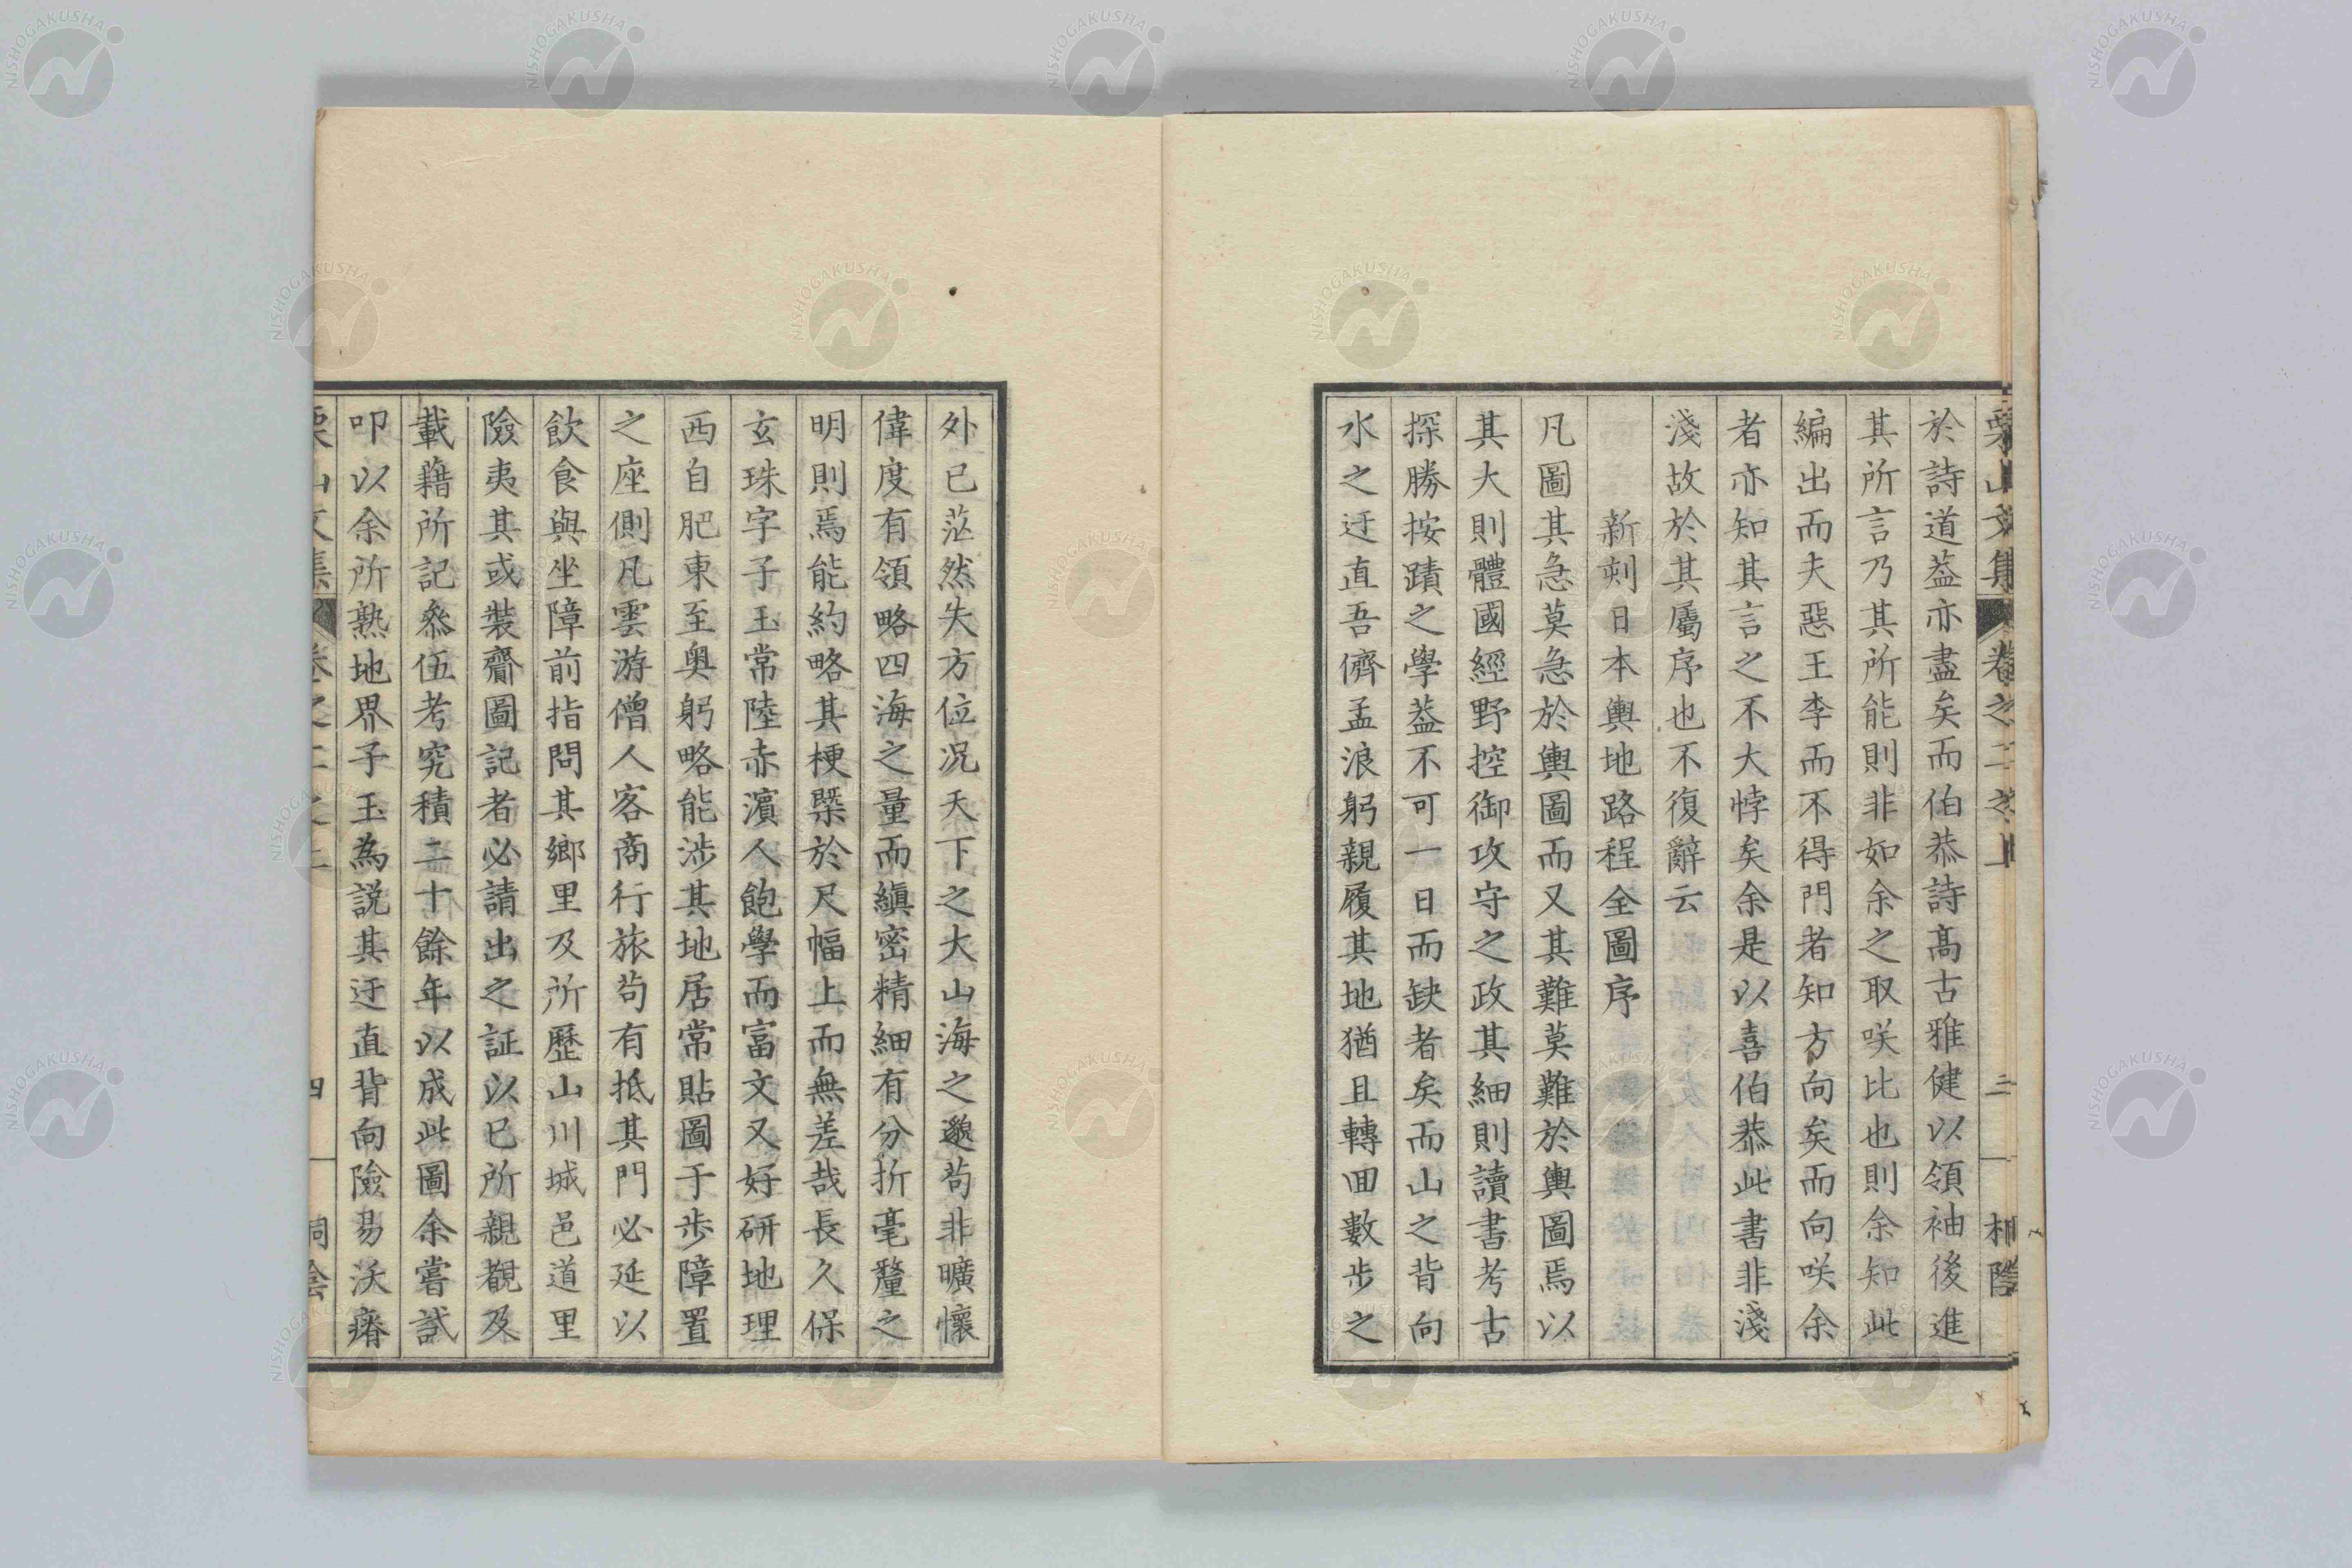 於詩道葢亦盡矣而伯恭詩高古雅健以領袖後進
其所言乃其所能則非如余之取咲比也則余知此
編出而夫惡王李而不得門者知方向矣而向咲余
者亦知其言之不大悖矣余是以喜伯恭此書非淺
淺故於其屬序也不復辭云
新刻日本輿地路程全圖序
凡圖其急莫急於輿圖而又其難莫難於輿圖焉以
其大則體國經野控御攻守之政其細則讀書考古
探勝按蹟之學葢不可一日而缺者矣而山之背向
水之迂直吾儕孟浪躬親履其地猶且轉回數步之
外已茫然失方位况天下之大山海之邈苟非曠懷
偉度有領略四海之量而縝密精細有分折毫釐之
明則焉能約略其梗槩於尺幅上而無差哉長久保
玄珠字子玉常陸赤濵人飽學而富文又好研地理
西自肥東至奥躬略能涉其地居常貼圖于步障置
之座側凡雲游僧人客商行旅苟有抵其門必延以
飲食與坐障前指問其鄉里及所歷山川城邑道里
險夷其或裝齎圖記者必請出之証以已所親覩及
載藉所記叅伍考究積二十餘年以成此圖余嘗試
叩以余所熟地界子玉為説其迂直背向險易沃瘠
栗山文集
卷之二之上
三
NISHOGAKUSHA